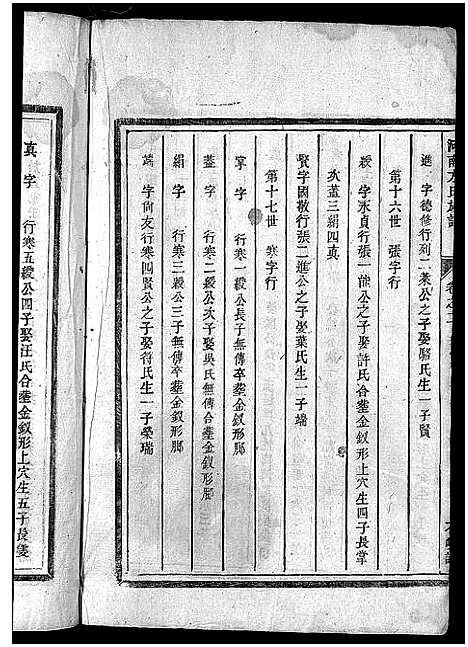 河南方氏族譜
卷之二
進 字德修行列二葉公之子娶駱氏生一子賢
第十六世 張字行
綬 字永貞行張一能公之子娶許氏合塟金釵形上穴生四子長掌
次蓋三絹四真
賢字國敬行張二進公之子娶葉氏生一子端
第十七世 寒字行
掌 字 行寒一綬公長子無傳卒塟金釵形脚
蓋 字 行寒二綬公次子娶吳氏無傳合塟金釵形脚
絹 字 行寒三綬公三子無傳卒塟金釵形脚
端 字尙友行寒四賢公之子娶符氏生一子榮瑞
真 字 行寒五綬公四子娶汪氏合塟金釵形上穴生五子長箋